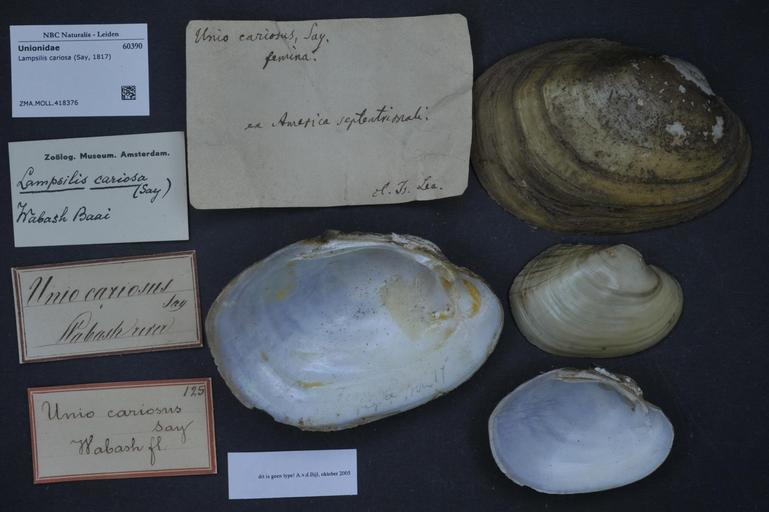 NBC Naturalis - Leiden
Unionidae 60390
Lampsilis cariosa (Say, 1817)
ZMA.MOLL.418376
Unio cariosus, Say.
femina.
ex America septentrionali.
d. Is. Lea.
Zoölog. Museum. Amsterdam.
Lampsilis cariosa
(Say)
Wabash Baai
Unio cariosus
Say
Wabash river
125
Unio cariosus
Say
Wabash fl.
dit is geen type! A.v.d.Bijl, oktober 2005